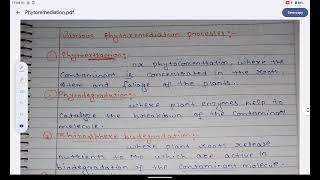 Phytoremediation.pdf
Save copy
Various Phytoremediation processes:-
① Phytoextraction:-
or phytoconcentration, where the
contaminant is concentrated in the roots,
stem and foliage of the plants.
② Phytodegradation:-
where plant enzymes help to
catalyze the breakdown of the contaminant
molecule.
Rhizosphere biodegradation:-
where plant roots release
nutrients to the which are active in
biodegradation of the contaminant molecule.